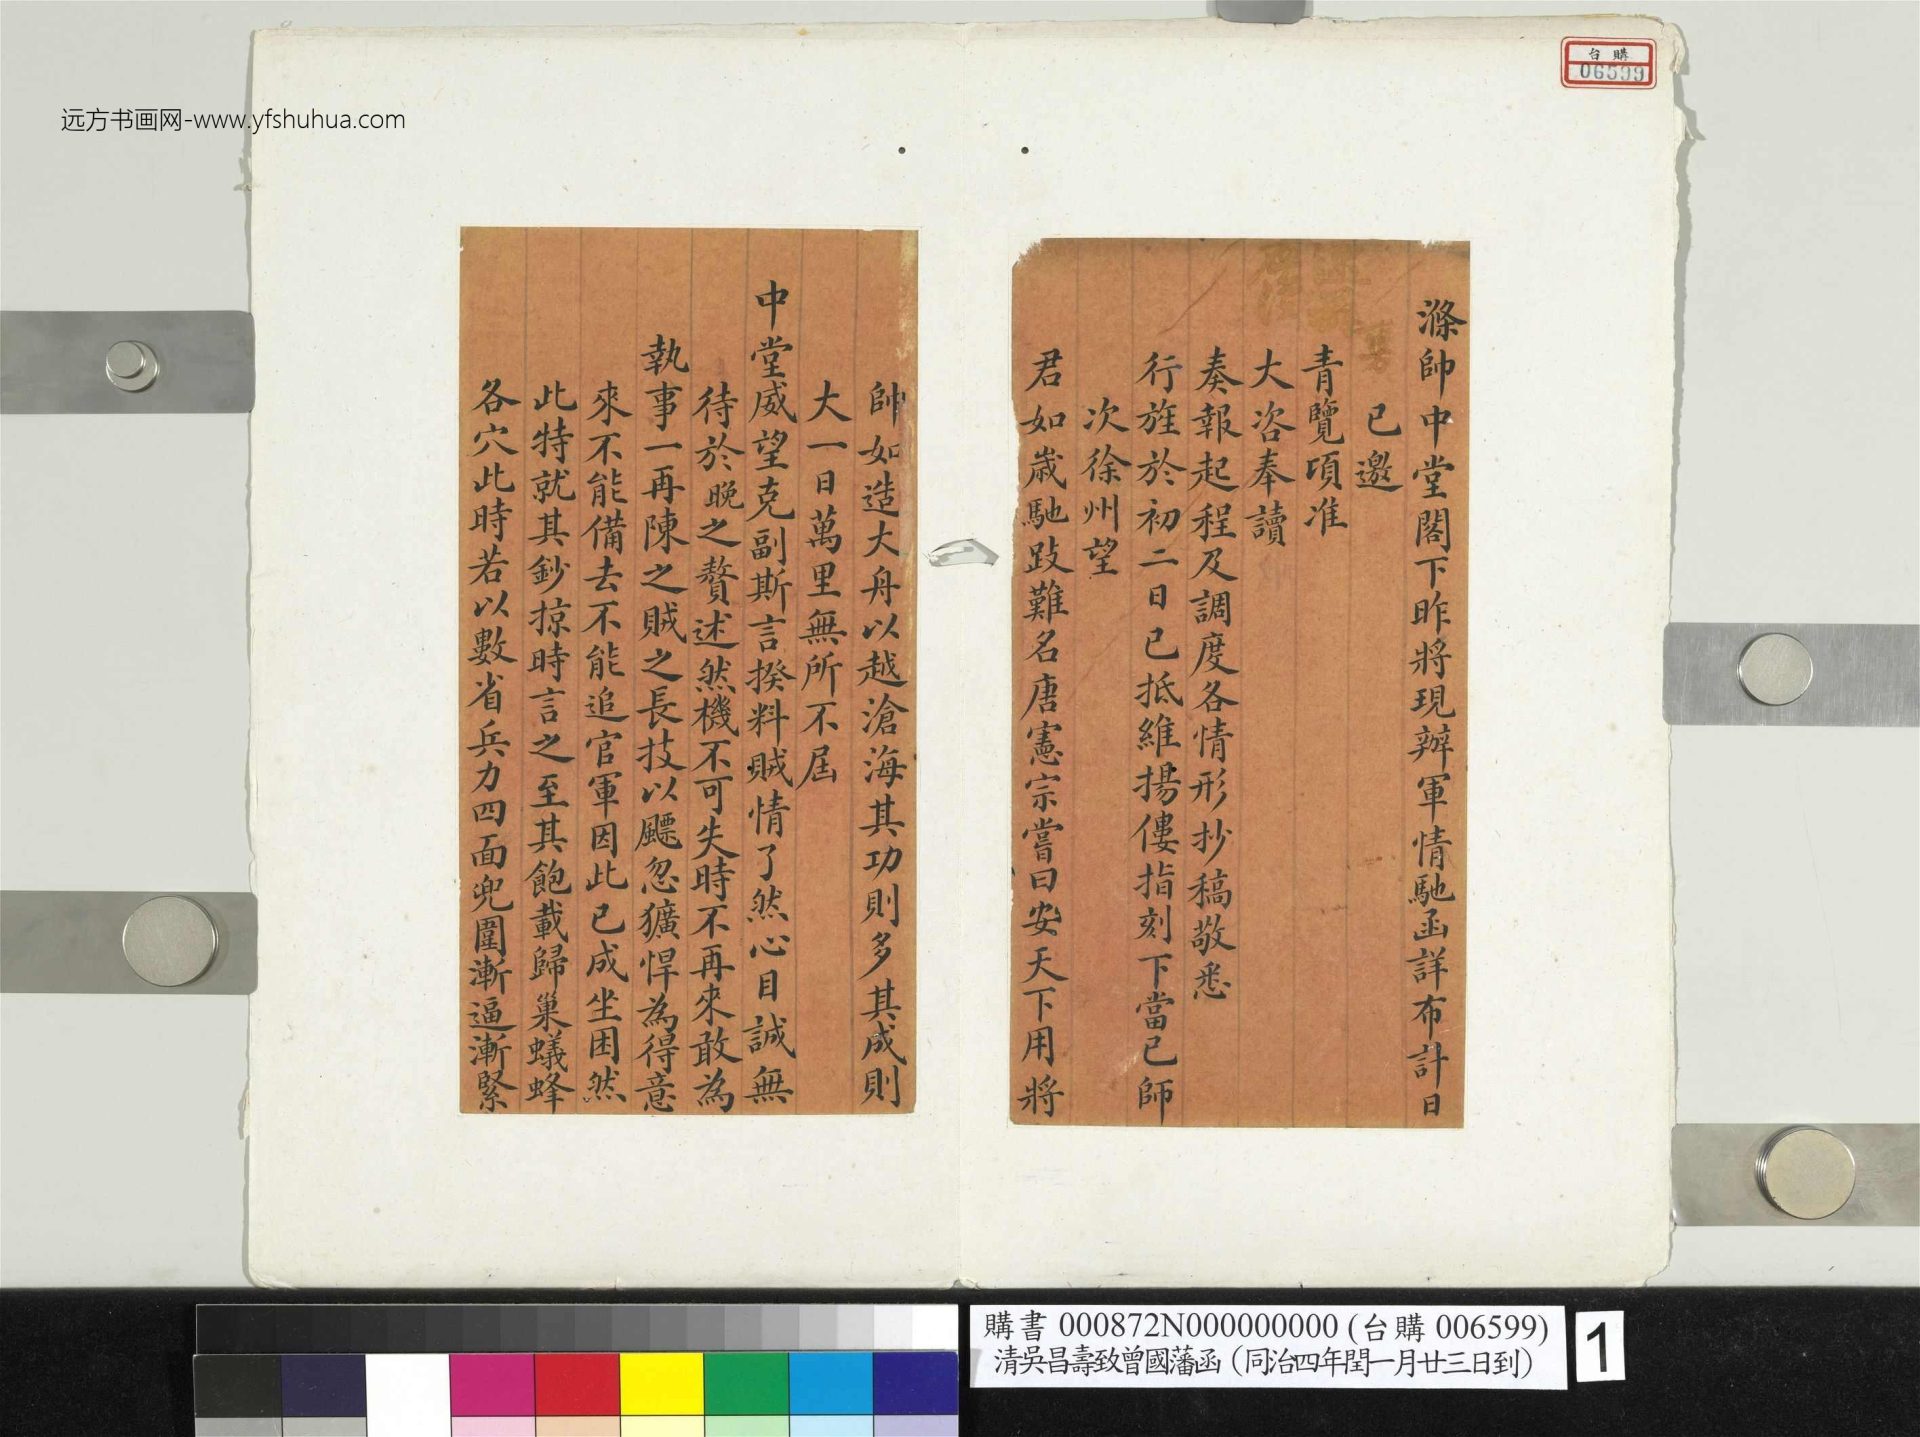 远方书画网-www.yfshuhua.com
台購
06599
滌帥中堂閣下昨將現辦軍情馳函詳布計日
已邀
青覽頃准
大咨奉讀
奏報起程及調度各情形抄稿敬悉
行旌於初二日已抵維揚僂指刻下當已師
次徐州望
君如歲馳跂難名唐憲宗嘗曰安天下用將
帥如造大舟以越滄海其功則多其成則
大一日萬里無所不屆
中堂威望克副斯言揆料賊情了然心目誠無
待於晚之贅述然機不可失時不再來敢為
執事一再陳之賊之長技以飃忽獷悍為得意
來不能備去不能追官軍因此已成坐困然
此特就其鈔掠時言之至其飽載歸巢蟻蜂
各穴此時若以數省兵力四面兜圍漸逼漸緊
購書 000872N000000000 (台購 006599)
清吳昌壽致曾國藩函 (同治四年閏一月廿三日到)
1